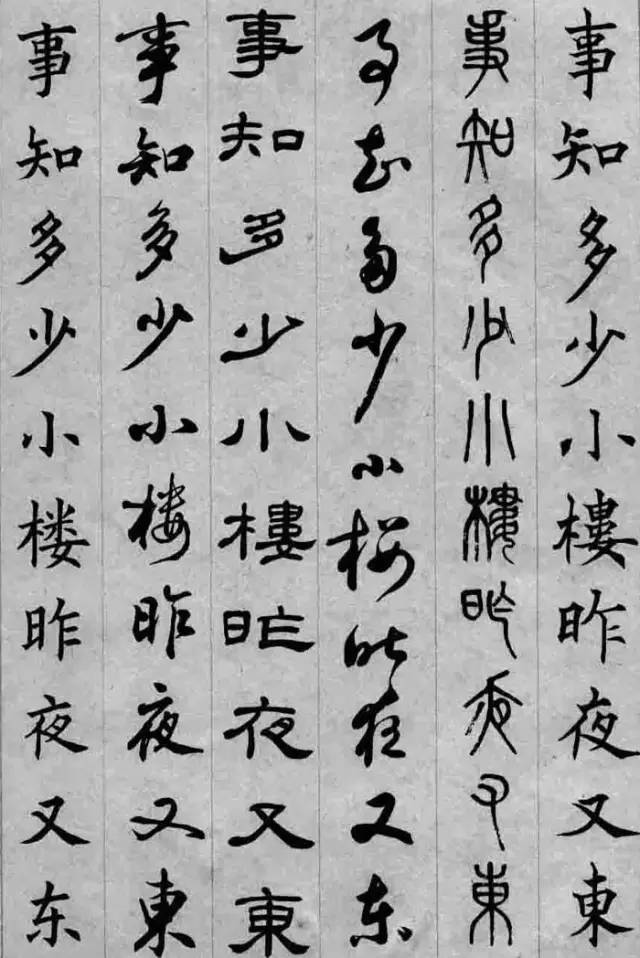 事知多少小樓昨夜又東
事知多少小樓昨夜又東
事知多少小楼昨夜又东
事知多少小樓昨夜又東
事知多少小楼昨夜又東
事知多少小楼昨夜又东